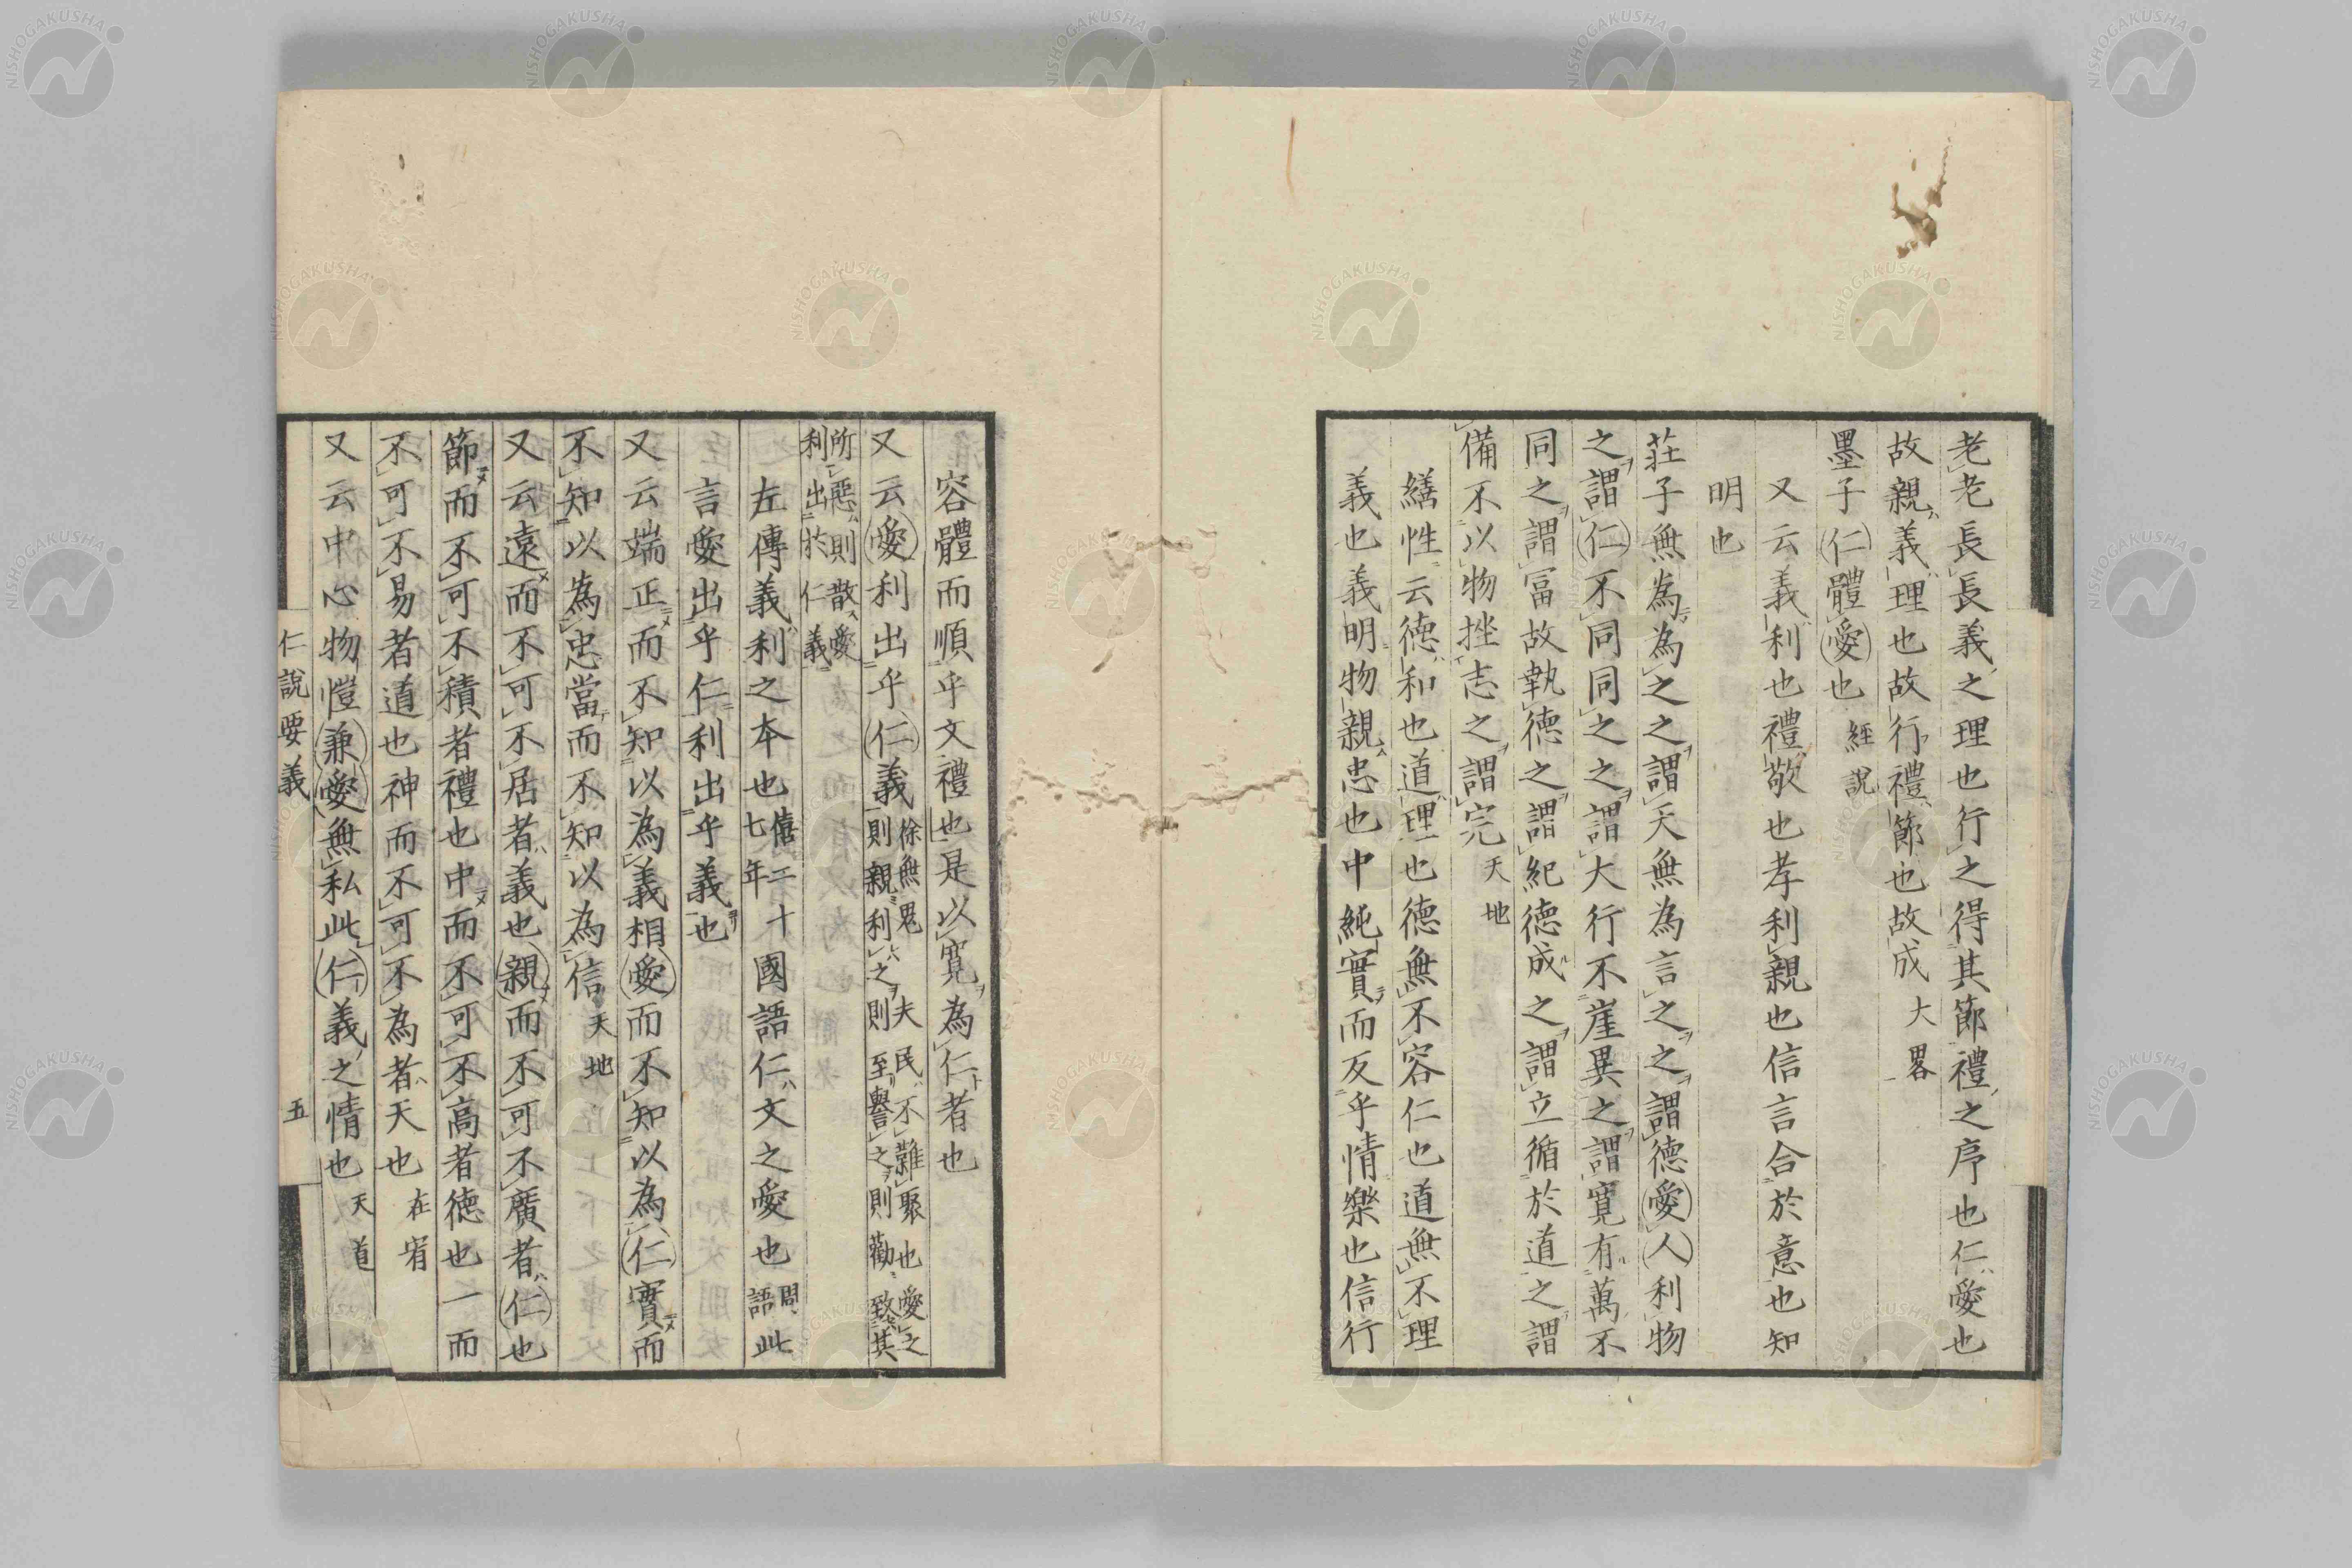 老老長長義之理也行之得其節禮之序也仁愛也
故親義理也故行禮節也故成大畧
墨子仁體愛也經說
又云義利也禮敬也孝利親也信言合於意也知
明也
莊子無為為之之謂天無為言之之謂德愛人利物
之謂仁不同同之之謂大行不崖異之謂寬有萬不
同之謂富故執德之謂紀德成之謂立循於道之謂
備不以物挫志之謂完天地
繕性云德和也道理也德無不容仁也道無不理
義也義明物親忠也中純實而反乎情樂也信行
容體而順乎文禮也是以寬為仁者也
又云愛利出乎仁義徐無鬼夫民不難聚也愛之則親利之則至譽之則勸致其
所惡則散愛利出於仁義
左傳義利之本也僖二十七年國語仁文之愛也周語此
言愛出乎仁利出乎義也
又云端正而不知以為義相愛而不知以為仁實而
不知以為忠當而不知以為信天地
又云遠而不可不居者義也親而不可不廣者仁也
節而不可不積者禮也中而不可不高者德也一而
不可不易者道也神而不可不為者天也在宥
又云中心物愷兼愛無私此仁義之情也天道
仁說要義 五
NISHOGAKUSHA